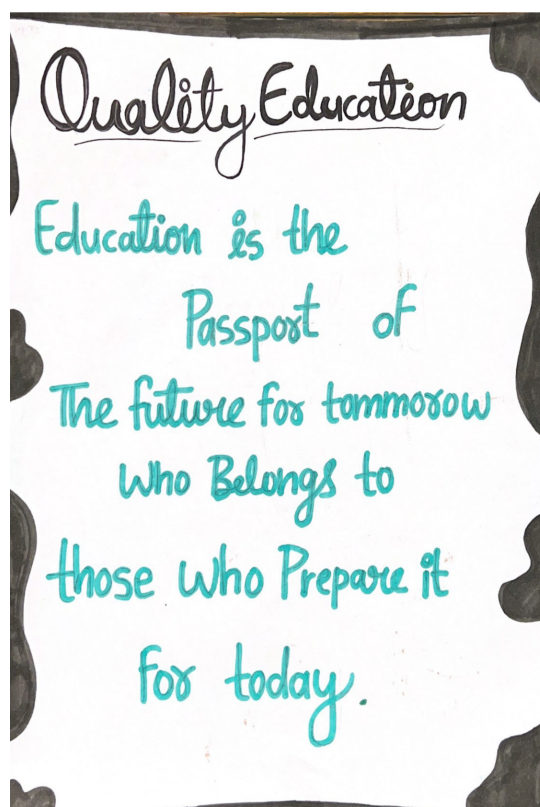 Quality Education
Education is the
Passport of
The future for tommorow
Who Belongs to
those who Prepare it
For today.